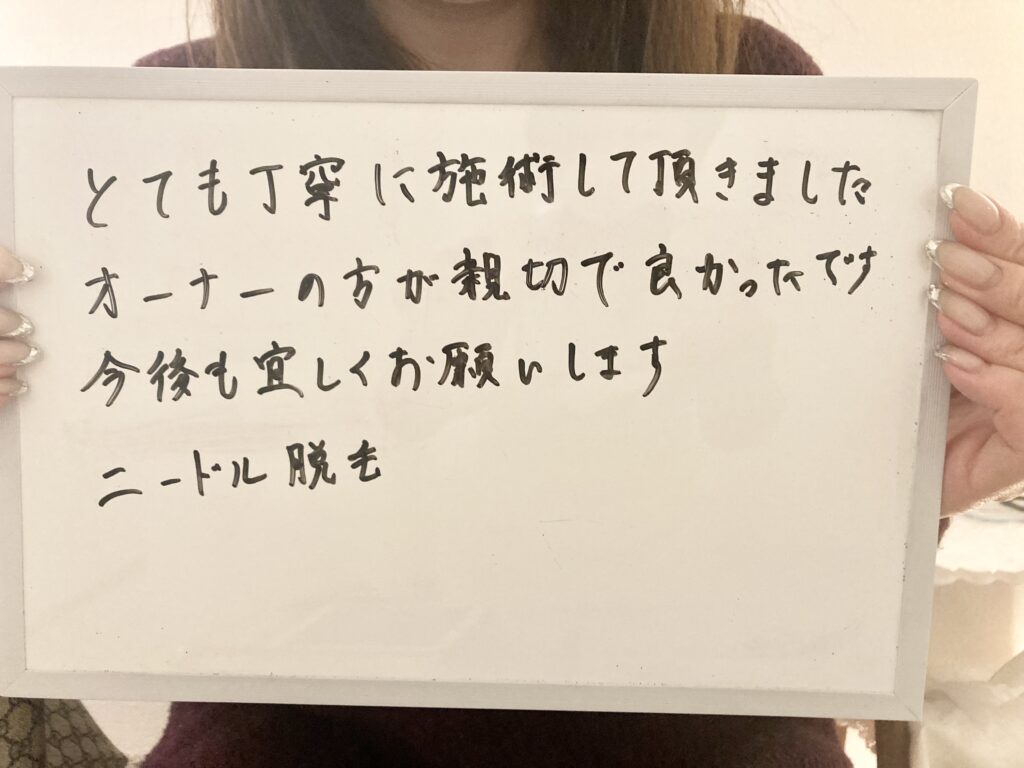 とても丁寧に施術して頂きました
オーナーの方が親切で良かったです
今後も宜しくお願いします
ニードル脱毛